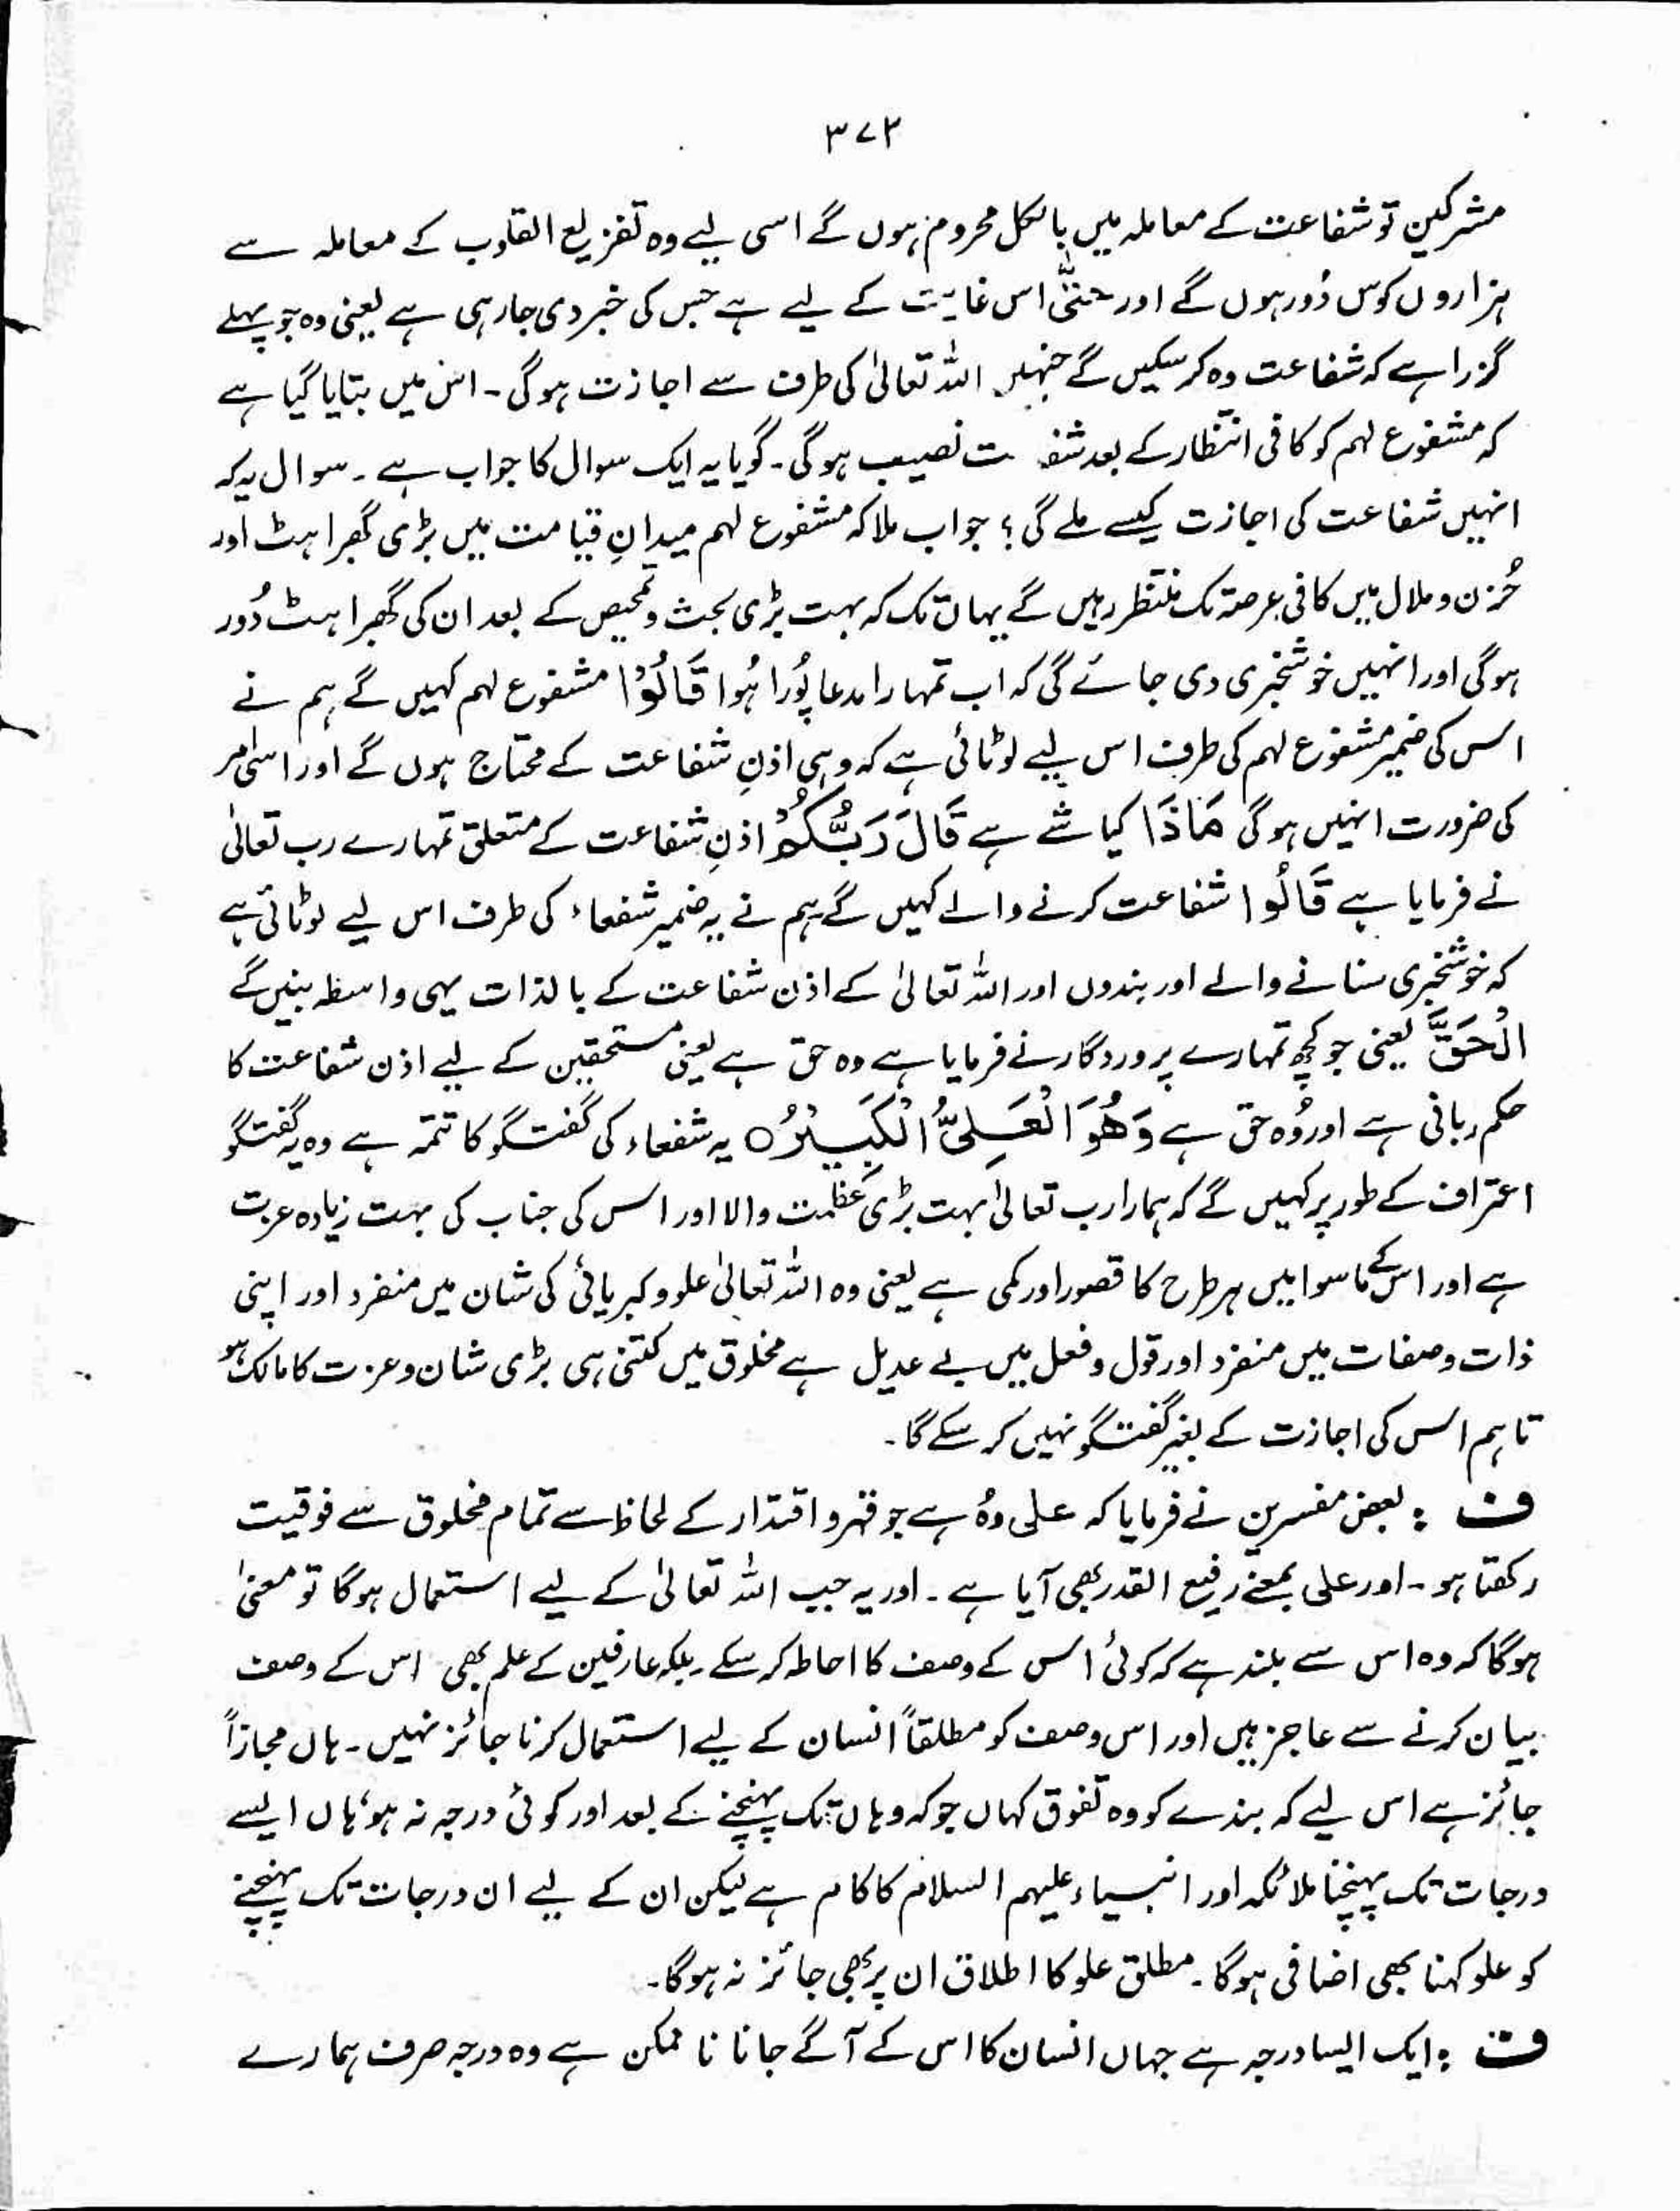 ۳۷۲
مشرکین تو شفاعت کے معاملہ میں بالکل محروم ہوں گے اسی لیے وہ تفزیع القلوب کے معاملہ سے
ہزاروں کوس دُور ہوں گے اور حتیّٰ اس غایت کے لیے ہے جس کی خبر دی جا رہی ہے یعنی وہ جو پہلے
گزرا ہے کہ شفاعت وہ کر سکیں گے جنہیں اللہ تعالیٰ کی طرف سے اجازت ہوگی۔ اس میں بتایا گیا ہے
کہ مشفوع لہم کو کافی انتظار کے بعد شفـ ـت نصیب ہوگی۔ گویا یہ ایک سوال کا جواب ہے۔ سوال یہ کہ
انہیں شفاعت کی اجازت کیسے ملے گی؟ جواب ملا کہ مشفوع لہم میدانِ قیامت میں بڑی گھبراہٹ اور
حُزن و ملال میں کافی عرصہ تک منتظر رہیں گے یہاں تک کہ بہت بڑی بحث و تمحیص کے بعد ان کی گھبراہٹ دُور
ہوگی اور انہیں خوشخبری دی جائے گی کہ اب تمہارا مدعا پُورا ہُوا قَالُوْا مشفوع لہم کہیں گے ہم نے
اس کی ضمیر مشفوع لہم کی طرف اس لیے لوٹائی ہے کہ وہی اذنِ شفاعت کے محتاج ہوں گے اور اسی امر
کی ضرورت انہیں ہوگی مَاذَا کیا شے ہے قَالَ رَبُّكُمْ اذنِ شفاعت کے متعلق تمہارے رب تعالیٰ
نے فرمایا ہے قَالُوا شفاعت کرنے والے کہیں گے ہم نے یہ ضمیر شفعاء کی طرف اس لیے لوٹائی ہے
کہ خوشخبری سنانے والے اور بندوں اور اللہ تعالیٰ کے اذن شفاعت کے بالذات یہی واسطہ بنیں گے
الْحَقَّ یعنی جو کچھ تمہارے پروردگار نے فرمایا ہے وہ حق ہے یعنی مستحقین کے لیے اذن شفاعت کا
حکم ربانی ہے اور وُہ حق ہے وَهُوَ الْعَلِیُّ الْكَبِیْرُ ○ یہ شفعاء کی گفتگو کا تتمہ ہے وہ یہ گفتگو
اعتراف کے طور پر کہیں گے کہ ہمارا رب تعالیٰ بہت بڑی عظمت والا اور اس کی جناب کی بہت زیادہ عزت
ہے اور اس کے ماسوا میں ہر طرح کا قصور اور کمی ہے یعنی وہ اللہ تعالیٰ علو و کبریائی کی شان میں منفرد اور اپنی
ذات و صفات میں منفرد اور قول و فعل میں بے عدیل ہے مخلوق میں کتنی ہی بڑی شان و عزت کا مالک ہو
تاہم اس کی اجازت کے بغیر گفتگو نہیں کر سکے گا۔
ف : بعض مفسرین نے فرمایا کہ علی وہُ ہے جو قہر و اقتدار کے لحاظ سے تمام مخلوق سے فوقیت
رکھتا ہو۔ اور علی بمعنے رفیع القدر بھی آیا ہے۔ اور یہ جب اللہ تعالیٰ کے لیے استعمال ہوگا تو معنیٰ
ہوگا کہ وہ اس سے بلند ہے کہ کوئی اس کے وصف کا احاطہ کر سکے۔ بلکہ عارفین کے علم بھی اس کے وصف
بیان کرنے سے عاجز ہیں اور اس وصف کو مطلقاً انسان کے لیے استعمال کرنا جائز نہیں۔ ہاں مجازاً
جائز ہے اس لیے کہ بندے کو وہ تفوق کہاں جو کہ وہاں تک پہنچنے کے بعد اور کوئی درجہ نہ ہو، ہاں ایسے
درجات تک پہنچنا ملائکہ اور انبیاء علیہم السلام کا کام ہے لیکن ان کے لیے ان درجات تک پہنچنے
کو علو کہنا بھی اضافی ہوگا۔ مطلق علو کا اطلاق ان پر بھی جائز نہ ہوگا۔
ف : ایک ایسا درجہ ہے جہاں انسان کا اس کے آگے جانا نا ممکن ہے وہ درجہ صرف ہمارے